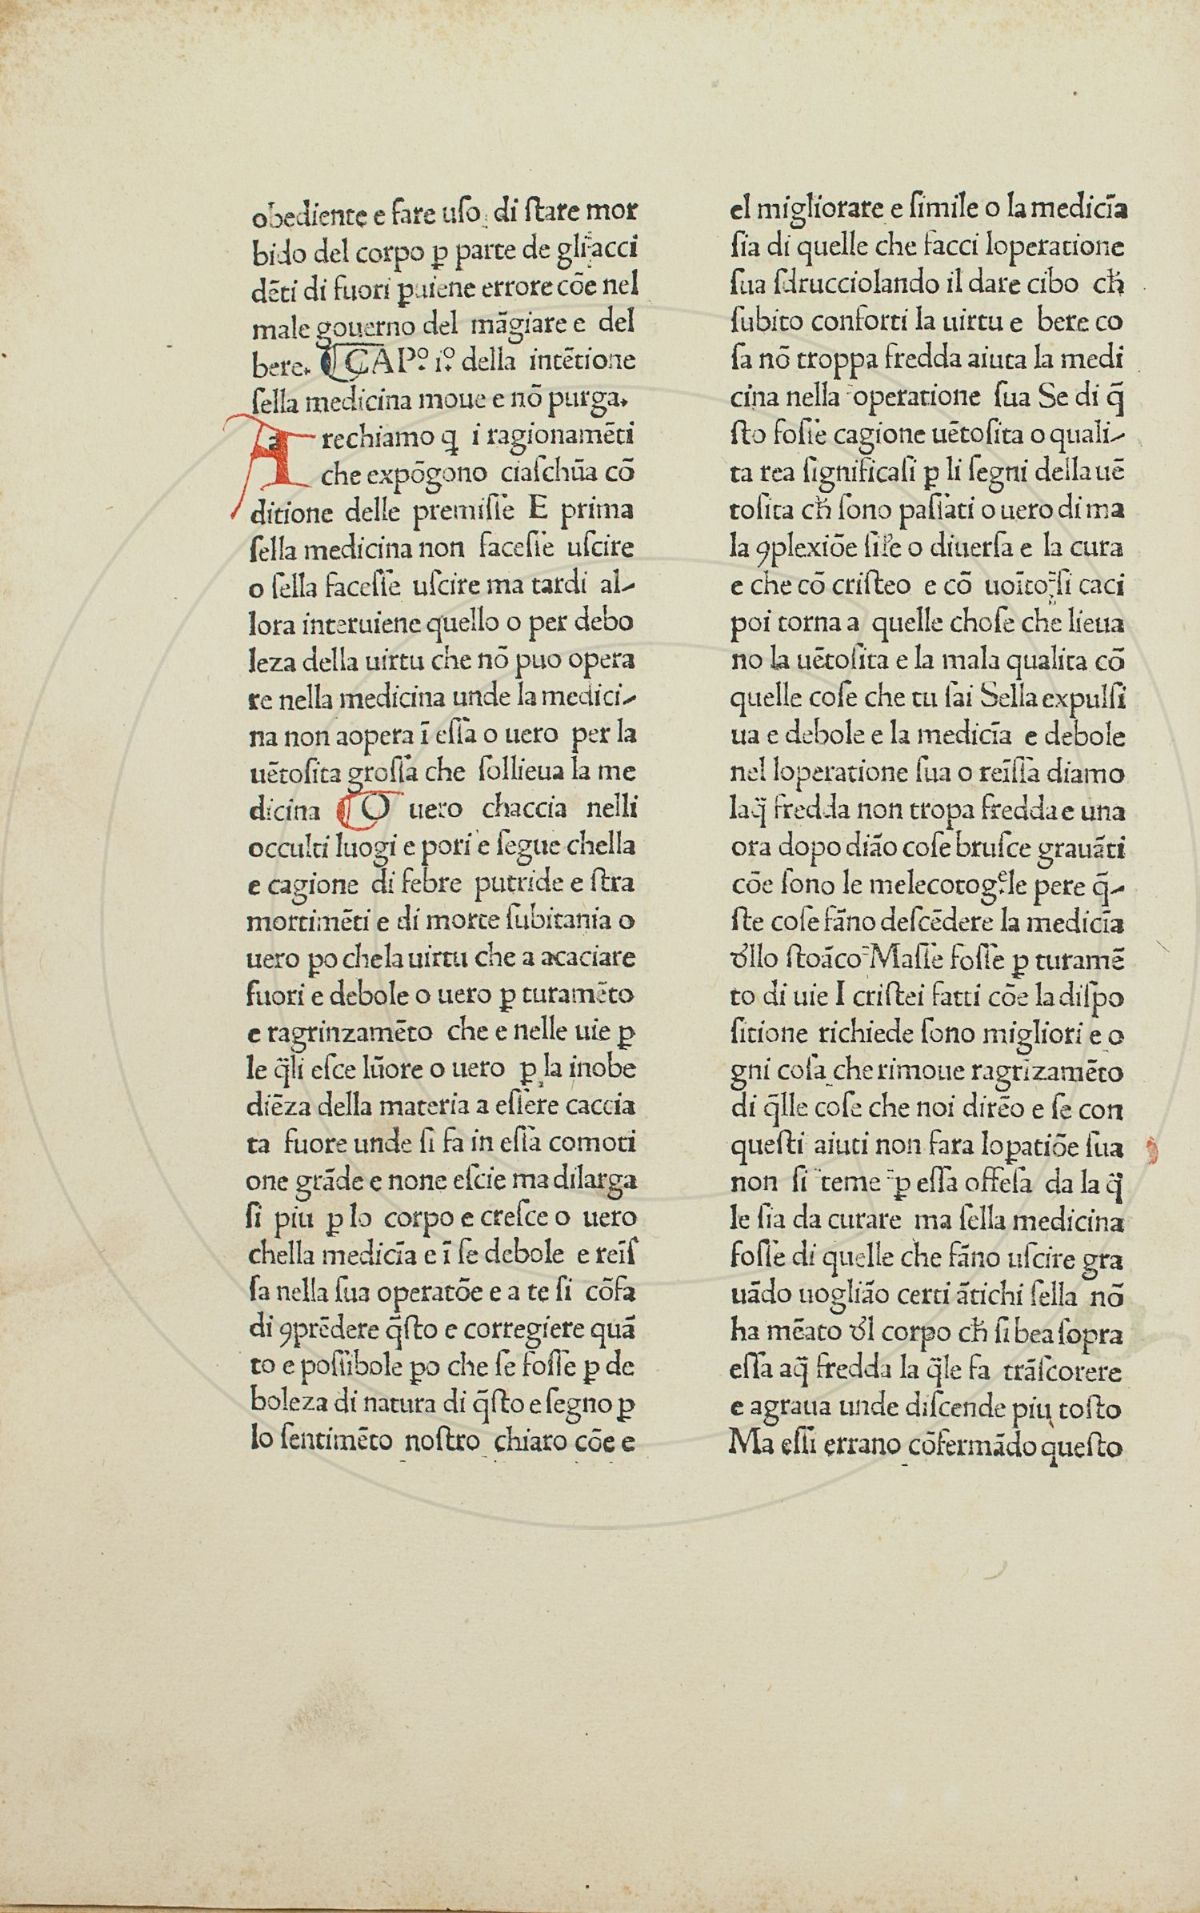 obediente e fare uſo di ſtare mor
bido del corpo ꝑ parte de gli acci
dēti di fuori ꝑuiene errore cōe nel
male gouerno del māgiare e del
bere. CAPº. iº. della intētione
ſella medicina moue e nō purga.
Arechiamo q i ragionamēti
che expōgono ciaſchūa cō
ditione delle premiſſe E prima
ſella medicina non faceſſe uſcire
o ſella faceſſe uſcire ma tardi al-
lora interuiene quello o per debo
leza della uirtu che nō puo opera
re nella medicina unde la medici-
na non aopera ī eſſa o uero per la
uētoſita groſſa che ſollieua la me
dicina O uero chaccia nelli
occulti luogi e pori e ſegue chella
e cagione di febre putride e ſtra
mortimēti e di morte ſubitania o
uero ꝑo che la uirtu che a acaciare
fuori e debole o uero ꝑ turamēto
e ragrinzamēto che e nelle uie ꝑ
le q̄li eſce lūore o uero ꝑ la inobe
diēza della materia a eſſere caccia
ta fuore unde ſi fa in eſſa comoti
one grāde e none eſcie ma dilarga
ſi piu ꝑ lo corpo e creſce o uero
chella medicīa e ī ſe debole e reīſ
ſa nella ſua operatōe e a te ſi cōfa
di ꝯprēdere q̄ſto e corregiere quā
to e poſſibole ꝑo che ſe foſſe ꝑ de
boleza di natura di q̄ſto e ſegno ꝑ
lo ſentimēto noſtro chiaro cōe e
el migliorare e ſimile o la medicīa
ſia di quelle che facci loperatione
ſua ſdrucciolando il dare cibo cħ
ſubito conforti la uirtu e bere co
ſa nō troppa fredda aiuta la medi
cina nella operatione ſua Se di q̄
ſto foſſe cagione uētoſita o quali-
ta rea ſignificaſi ꝑ li ſegni della uē
toſita cħ ſono paſſati o uero di ma
la ꝯplexiōe ſiſe o diuerſa e la cura
e che cō criſteo e cō uoīto ſi caci
poi torna a quelle choſe che lieua
no la uētoſita e la mala qualita cō
quelle coſe che tu ſai Sella expulſi
ua e debole e la medicīa e debole
nel loperatione ſua o reīſſa diamo
laq̄ fredda non tropa fredda e una
ora dopo diāo coſe bruſce grauāti
cōe ſono le melecotogͤ le pere q̄-
ſte coſe fāno deſcēdere la medicīa
ꝺllo ſtoāco Maſſe foſſe ꝑ turamē
to di uie I criſtei fatti cōe la diſpo
ſitione richiede ſono migliori e o
gni coſa che rimoue ragrīzamēto
di q̄lle coſe che noi dirēo e ſe con
queſti aiuti non fara loꝑatiōe ſua
non ſi teme ꝑ eſſa offeſa da la q̄
le ſia da curare ma ſella medicina
foſſe di quelle che fāno uſcire gra
uādo uogliāo certi ātichi ſella nō
ha mēato ꝺl corpo cħ ſi bea ſopra
eſſa aq̄ fredda la q̄le fa trāſcorere
e agraua unde diſcende piu toſto
Ma eſſi errano cōfermādo queſto